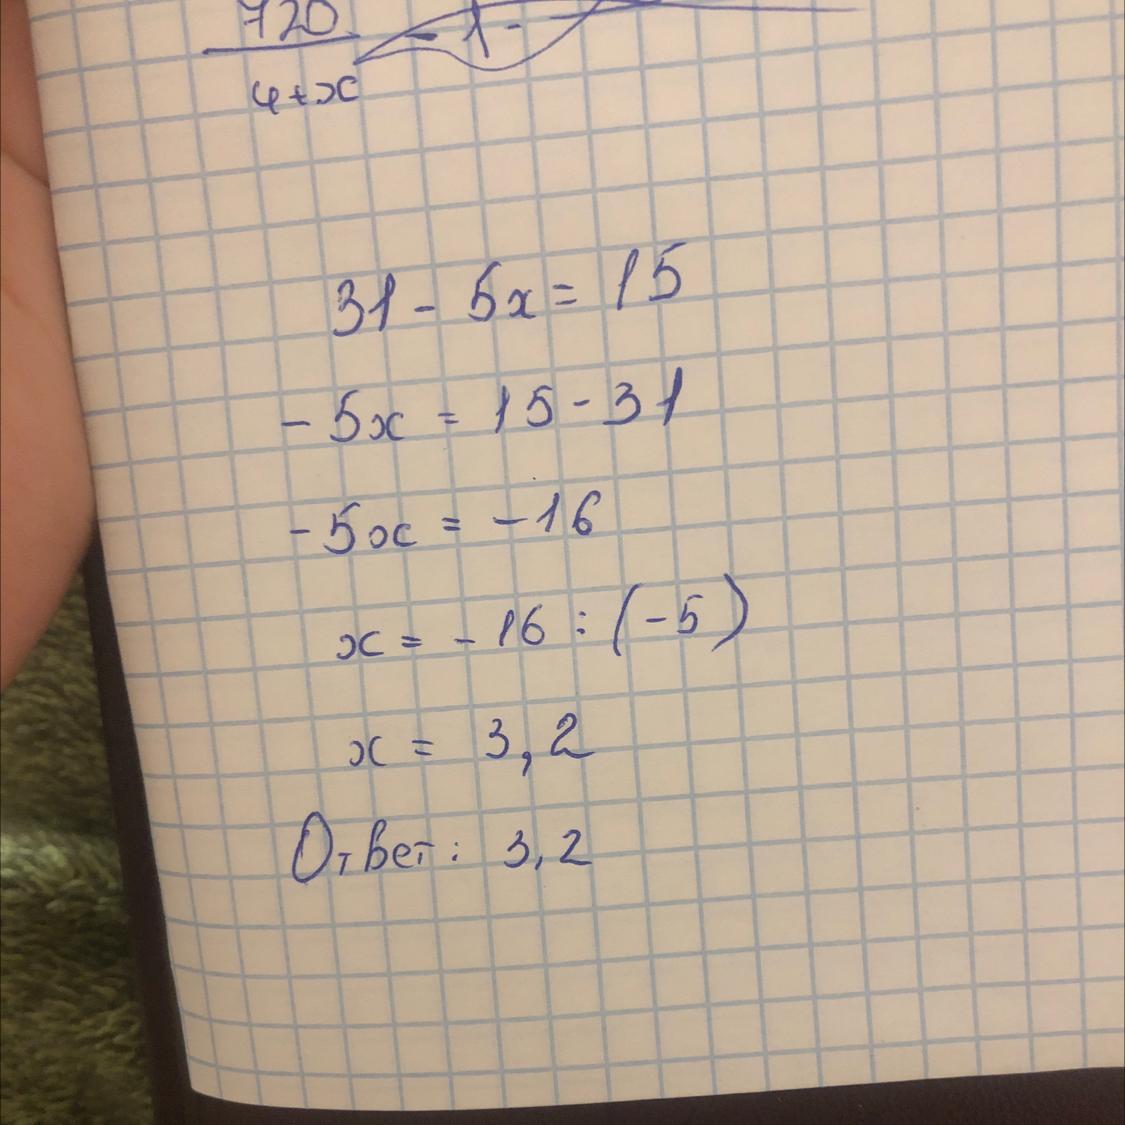 720
4+x
31 - 5x = 15
- 5x = 15 - 31
- 5x = - 16
x = - 16 : (-5)
x = 3,2
Ответ: 3,2